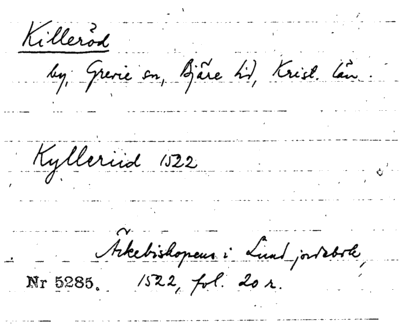 Killeröd
by, Grevie sn, Bjäre hd, Krist. län.
Kylleriid 1522
Ärkebiskopens i Lund jordebok,
Nr 5285. 1522, fol. 20 r.